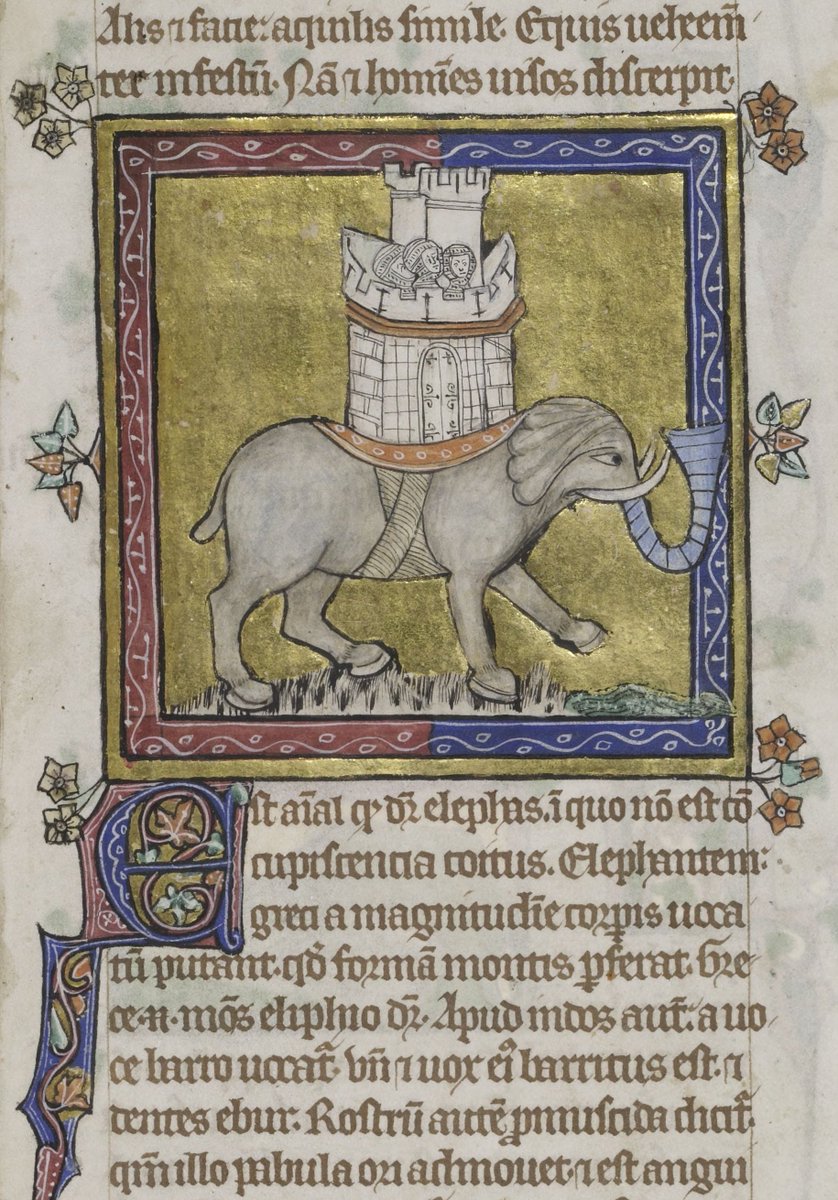 Alis ⁊ facie: aquilis simile. Equis uehem̄
ter infestū. Nā ⁊ homīes uisos discerpit.
Est aīal qđ dr̄ elephas. ī quo nō est cō
cupiscencia coitus. Elephantem:
greci a magnitudīe corp̄is uoca
tū putant. qđ formā montis p̄ferat. Gre
ce .n. mōs eliphio dr̄. Apud indos aut̄. a uo
ce barro uocat᷑. vn̄ ⁊ uox eiꝰ barritus est. ⁊
dentes ebur. Rostrū autē p̄muscida dicit᷑.
qm̄ illo pabula ori admouet. ⁊ est angui